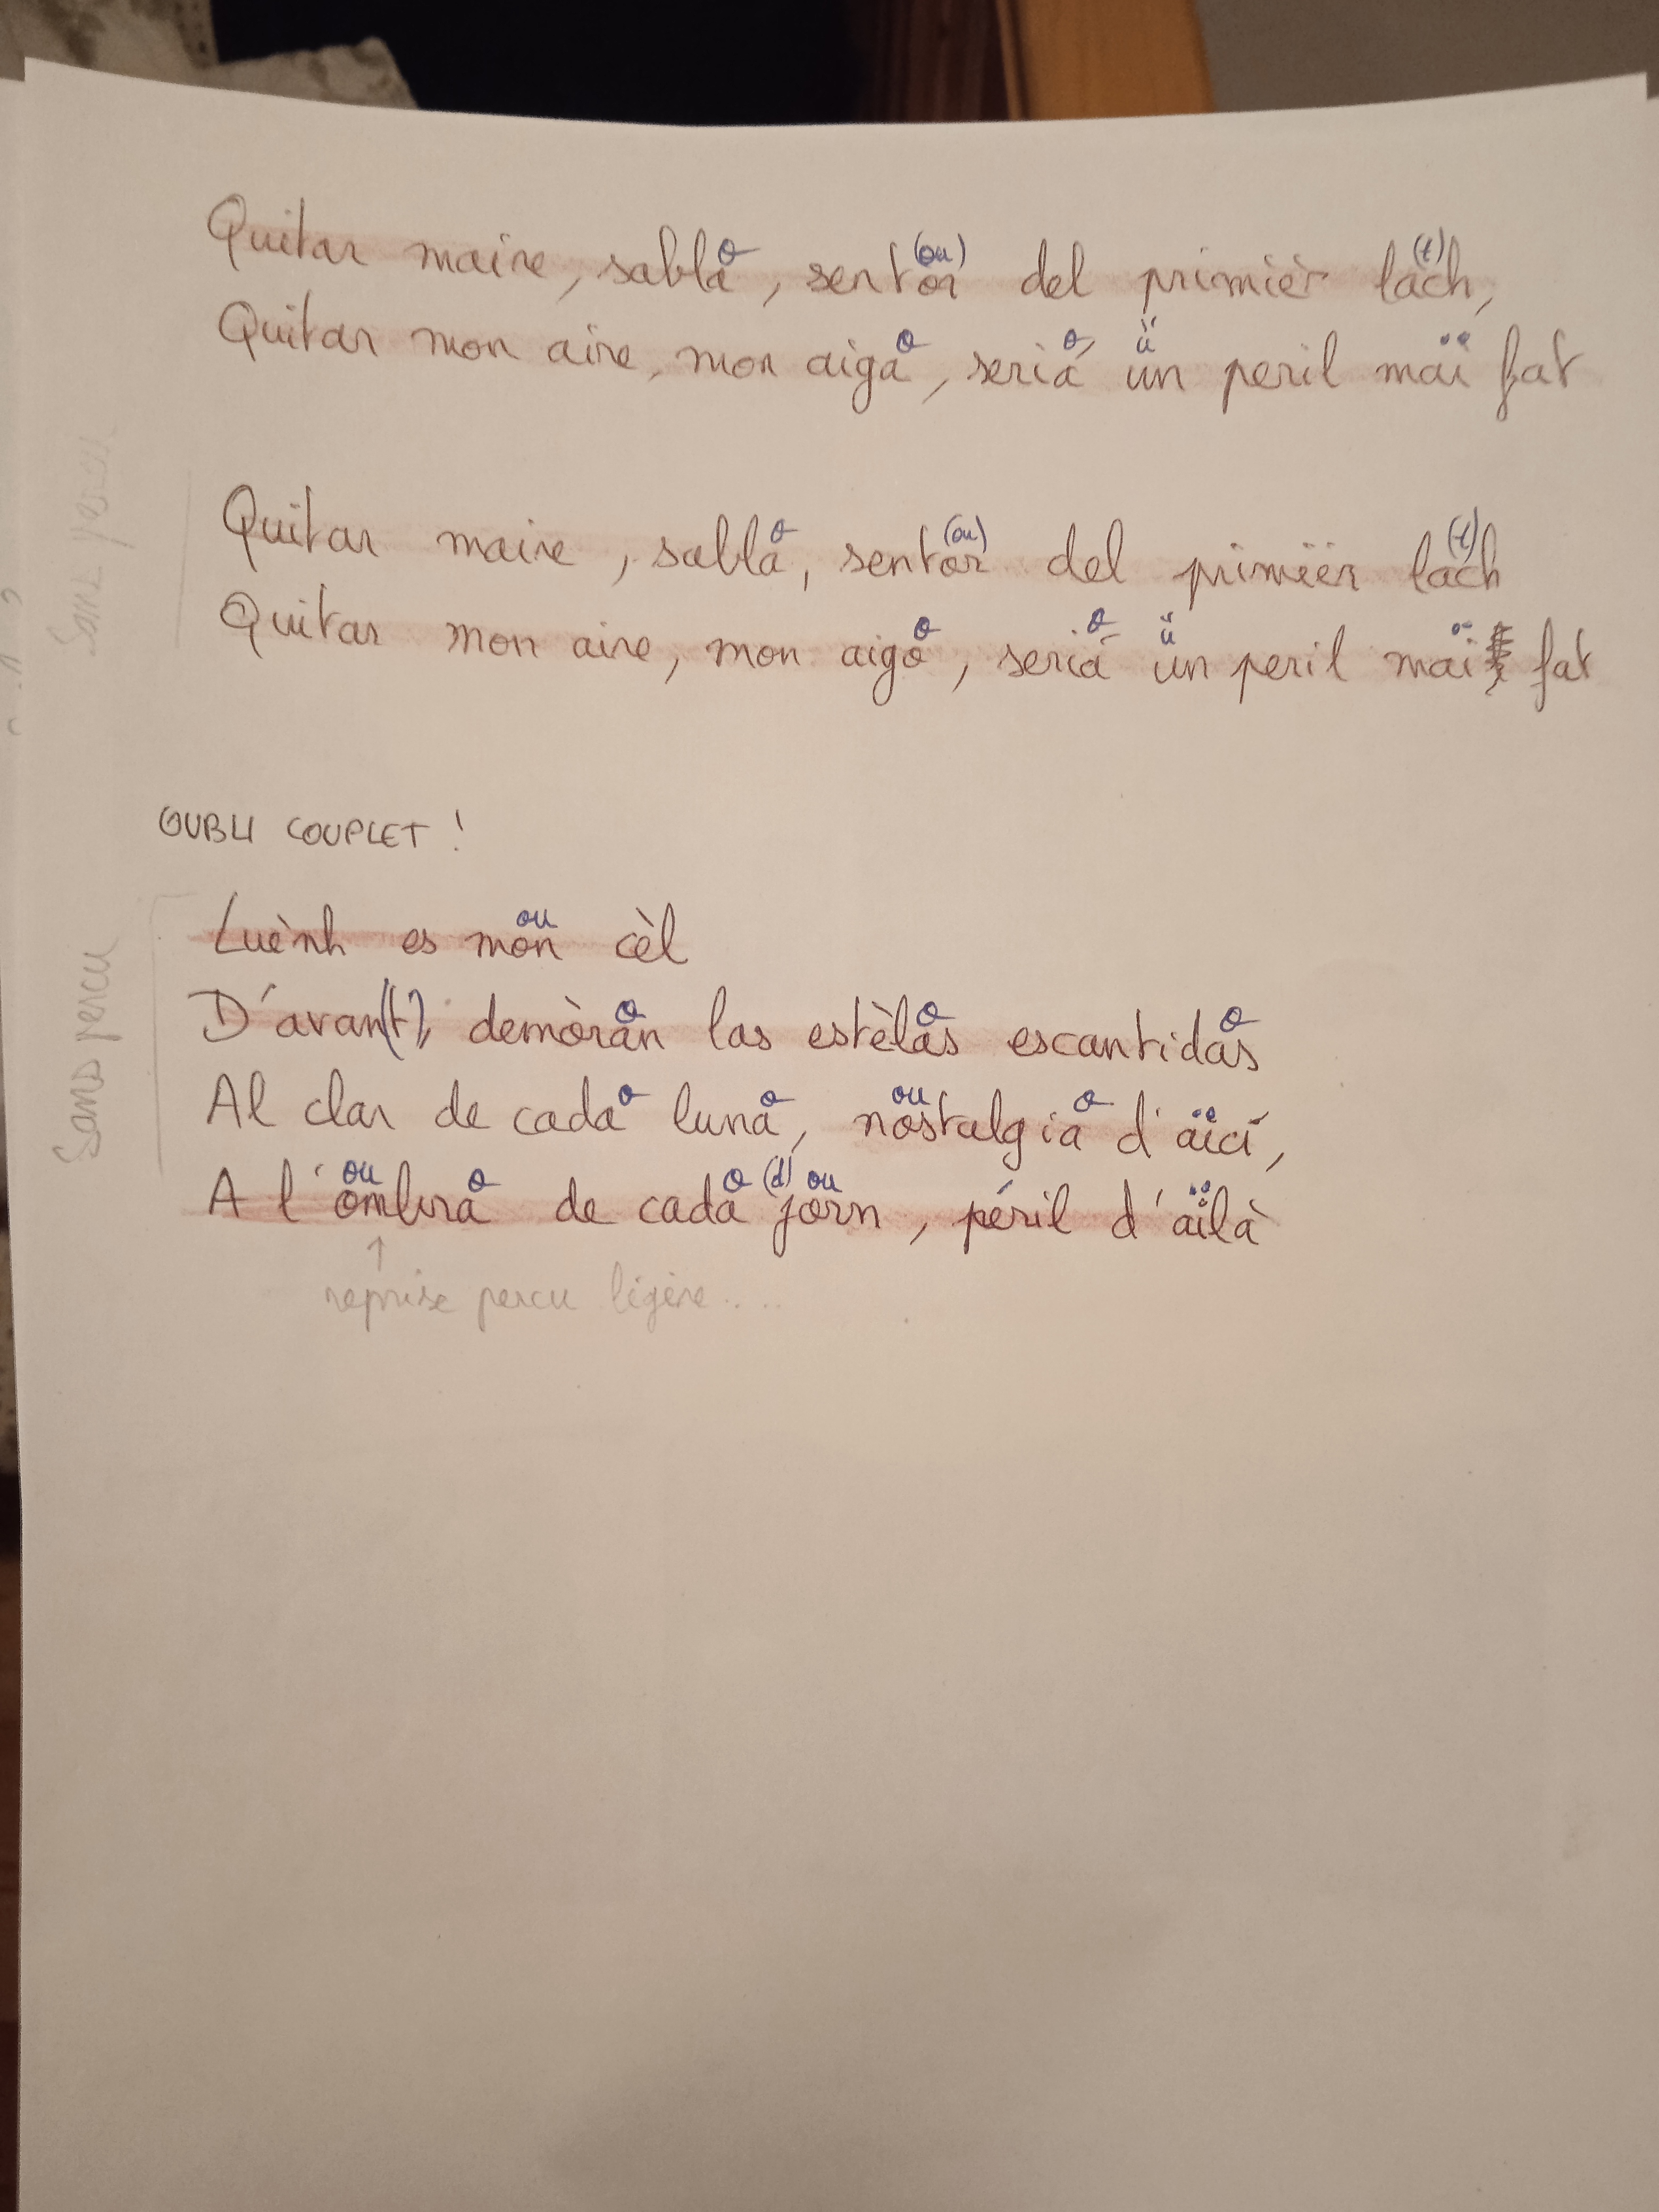 Quitar maire, sabla, sentor del primièr lach,
o (ou) (t)
Quitar mon aire, mon aiga, seriá un peril mai fat
o o ü ¨
Sans percu
Quitar maire, sabla, sentor del primièr lach
o (ou) (t)
Quitar mon aire, mon aiga, seriá un peril mai fat
o o ü ¨
OUBLI COUPLET !
Sans percu
Luènh es mon cèl
ou
D'avan(t), demòran las estèlas escantidas
o o o
Al clar de cada luna, nostalgia d'aicí,
o o ou o ¨
A l'ombra de cada jorn, péril d'ailà
ou o o (d) ou ¨
↑
reprise percu légère....